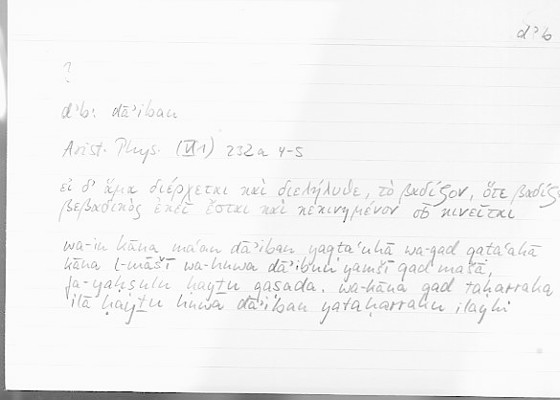 dʾb
?
dʾb: dāʾiban
Arist. Phys. (VI 1) 232a 4-5
εἰ δ' ἅμα διέρχεται καὶ διελήλυθε, τὸ βαδίζον, ὅτε βαδίζ
βεβαδικὸς ἐκεῖ ἔσται καὶ κεκινημένον οὗ κινεῖται
wa-in kāna maʿan dāʾiban yaqtaʿuhā wa-qad qataʿahā
kāna l-māšī wa-huwa dāʾibun yamšī qad mašā,
fa-yaḥṣulu ḥayṯu qaṣada. wa-kāna qad taḥarraka
ilā ḥayṯu huwa dāʾiban yataḥarraku ilayhi